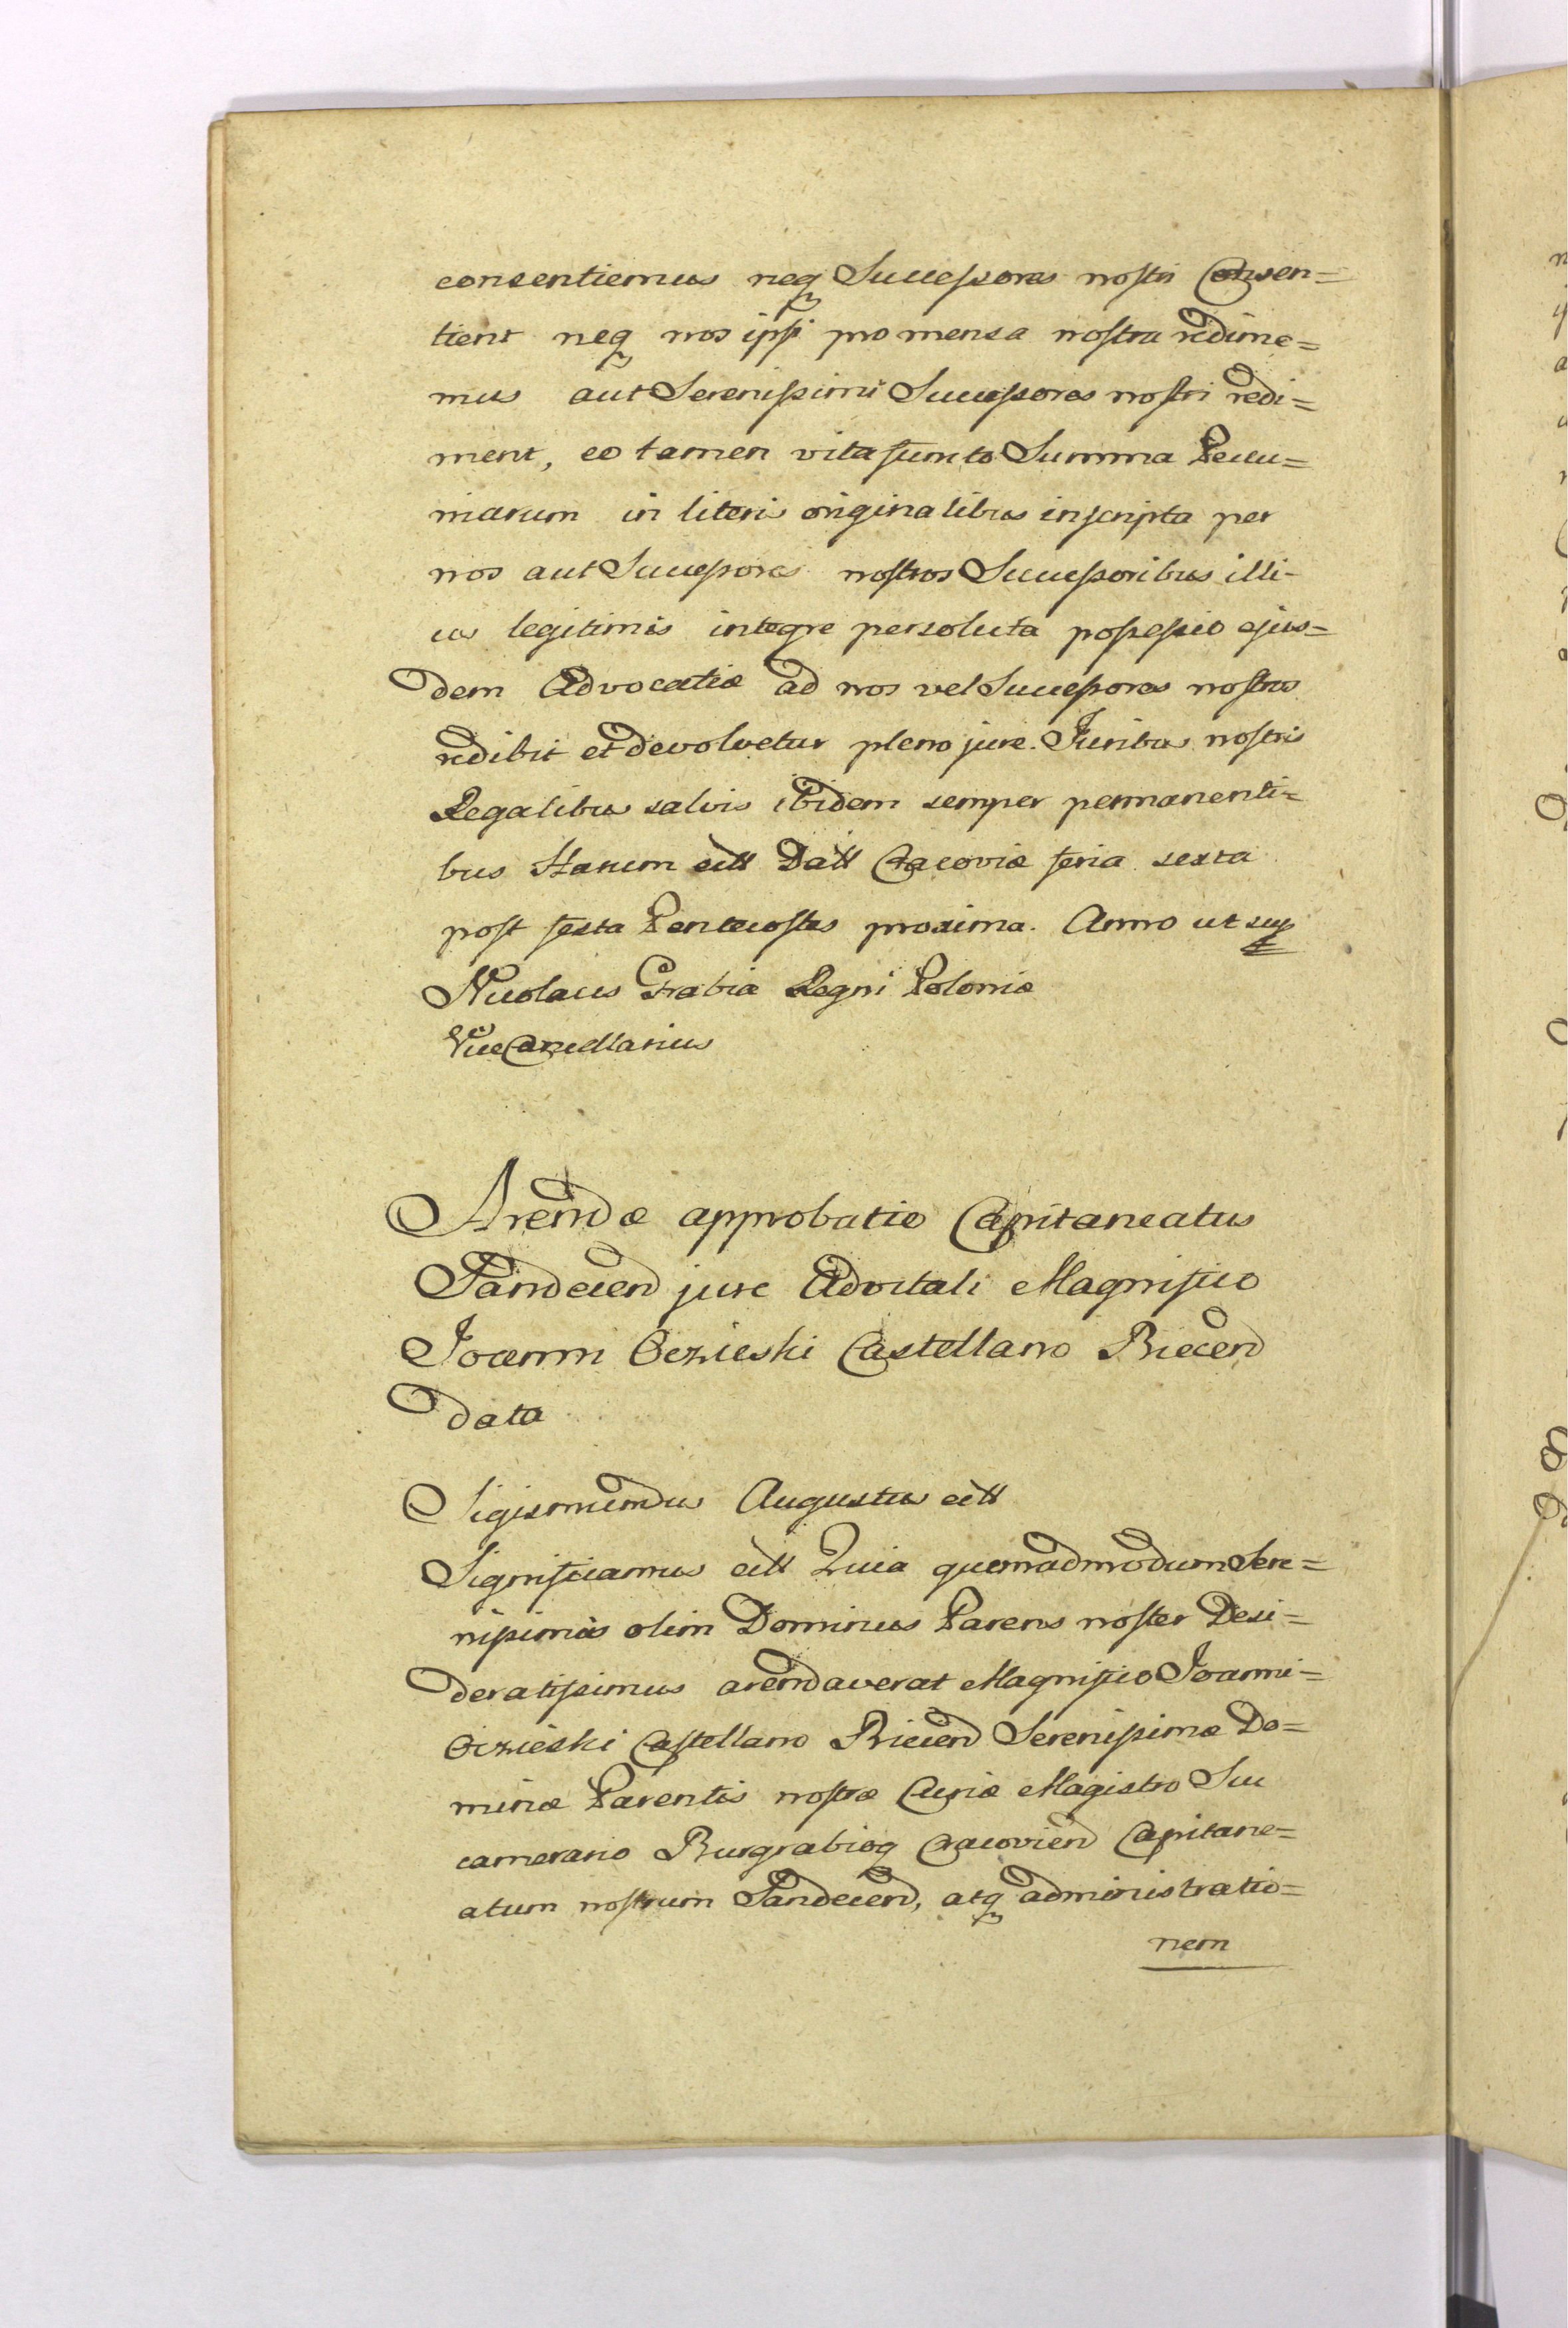 consentiemus neq Successores nostri Consen=
tient neq nos ipsi pro mensa nostra redime=
mus aut Serenissimi Successores nostri redi=
ment, eo tamen vita functo Summa Pecu=
niarum in literis originalibus inscripta per
nos aut Successores nostros Successoribus illi-
us legitimis integre persoluta possessio ejus=
dem Advocatiæ ad nos vel Successores nostros
redibit et devolvetur pleno jure. Juribus nostris
Regalibus salvis ibidem semper permanenti=
bus Harum ett Datt Cracoviæ feria sexta
post festa Pentecostes proxima. Anno ut sup
Nicolaus Grabia Regni Poloniæ
ViceCancellarius
Arendæ approbatio Capitaneatus
Sandecen jure Advitali Magnifico
Joanni Oczieski Castellano Biecen
data
Sigismundus Augustus ett
Significamus ett Quia quemadmodum Sere=
nissimus olim Dominus Parens noster Desi=
deratissimus arendaverat Magnifico Joanni=
Oczieski Castellano Biecen Serenissimæ Do=
minæ Parentis nostræ Curiæ Magistro Suc
camerario Burgrabioq Cracovien Capitane=
atum nostrum Sandecen, atq administratio=
nem